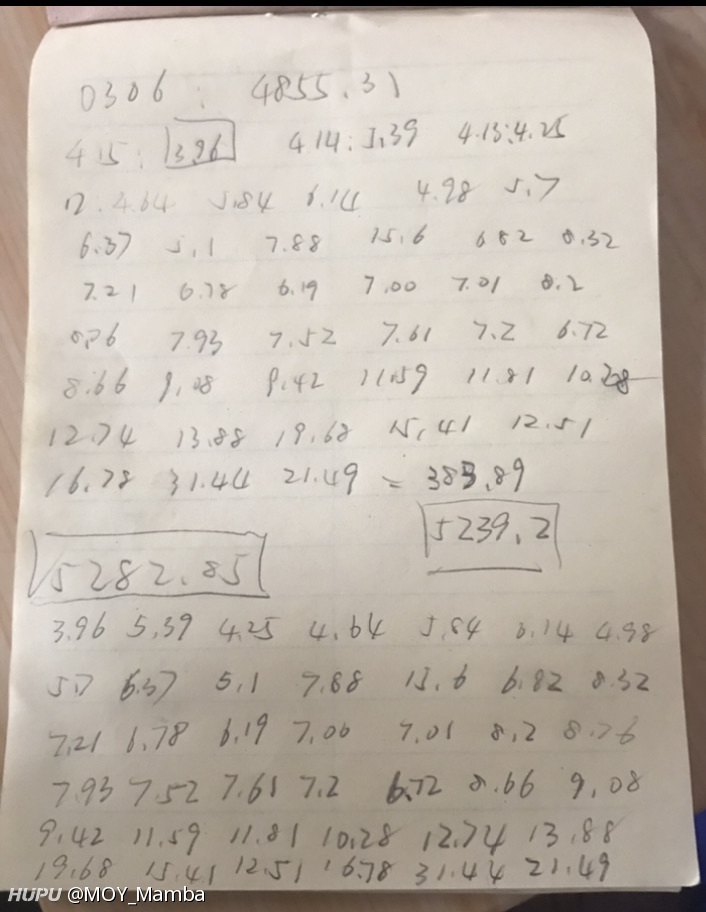 0306 : 4855.31
4.15 : 3.96 4.14 : 5.39 4.13 : 4.25
12 : 4.64 5.84 6.14 4.98 5.7
6.37 5.1 7.88 15.6 6.82 8.32
7.21 6.78 6.19 7.00 7.01 8.2
7.93 7.52 7.61 7.2 6.72
8.66 9.08 9.42 11.59 11.81 10.28
12.74 13.88 19.68 15.41 12.51
16.78 31.44 21.49 = 383.89
5239.2
5282.85
3.96 5.39 4.25 4.64 5.84 6.14 4.98
5.7 6.37 5.1 7.88 15.6 6.82 8.32
7.21 6.78 6.19 7.00 7.01 8.2 8.76
7.93 7.52 7.61 7.2 6.72 8.66 9.08
9.42 11.59 11.81 10.28 12.74 13.88
19.68 15.41 12.51 16.78 31.44 21.49
HUPU @MOY_Mamba